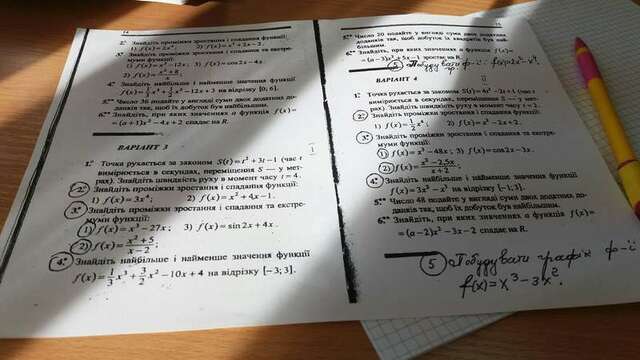 14
2.° Знайдіть проміжки зростання і спадання функції:
1) f(x)=2x⁴; 2) f(x)=x²+2x-2.
3.° Знайдіть проміжки зростання і спадання та екстре-
муми функції:
1) f(x)=x³-12x; 3) f(x)=cos2x-4x.
2) f(x)=
4.° Знайдіть найбільше і найменше значення функції
на відрізку [0; 6].
5.** Число 36 подайте у вигляді суми двох додатних до-
данків так, щоб їх добуток був найбільшим.
6.** Знайдіть, при яких значеннях a функція f(x)=
=(a+1)x³-4x+2 спадає на R.
ВАРІАНТ 3
1.° Точка рухається за законом S(t)=t²+3t-1 (час t
вимірюється в секундах, переміщення S — у мет-
рах). Знайдіть швидкість руху в момент часу t=4.
2.° Знайдіть проміжки зростання і спадання функції:
1) f(x)=3x⁴; 2) f(x)=x²+4x-1.
3.° Знайдіть проміжки зростання і спадання та екстре-
муми функції:
1) f(x)=x³-27x; 3) f(x)=sin2x+4x.
2) f(x)=(x²+5)/(x-2);
4.° Знайдіть найбільше і найменше значення функції
f(x)=1/3x³+3/2x²-10x+4 на відрізку [-3; 3].
5.** Число 20 подайте у вигляді суми двох додатних
доданків так, щоб добуток їх квадратів був най-
більшим.
6.** Знайдіть, при яких значеннях a функція f(x)=
=(a-3)x³+5x-1 зростає на R.
5 Побудувати
ВАРІАНТ 4
1.° Точка рухається за законом S(t)=4t²-2t+1 (час t
вимірюється в секундах, переміщення S — у мет-
рах). Знайдіть швидкість руху в момент часу t=2.
2.° Знайдіть проміжки зростання і спадання функції:
1) f(x)=1/2x⁴; 2) f(x)=x²-2x+2.
3.° Знайдіть проміжки зростання і спадання та екстре-
муми функції:
1) f(x)=x³-48x; 3) f(x)=cos2x-3x.
2) f(x)=(x²-2,5x)/(x+2).
4.° Знайдіть найбільше і найменше значення функції
f(x)=3x²-x³ на відрізку [-1; 3].
5.** Число 48 подайте у вигляді суми двох додатних до-
данків так, щоб їх добуток був найбільшим.
6.** Знайдіть, при яких значеннях a функція f(x)=
=(a-2)x³-3x-2 спадає на R.
5 Побудувати графік ф-ії
f(x)=x³-3x²